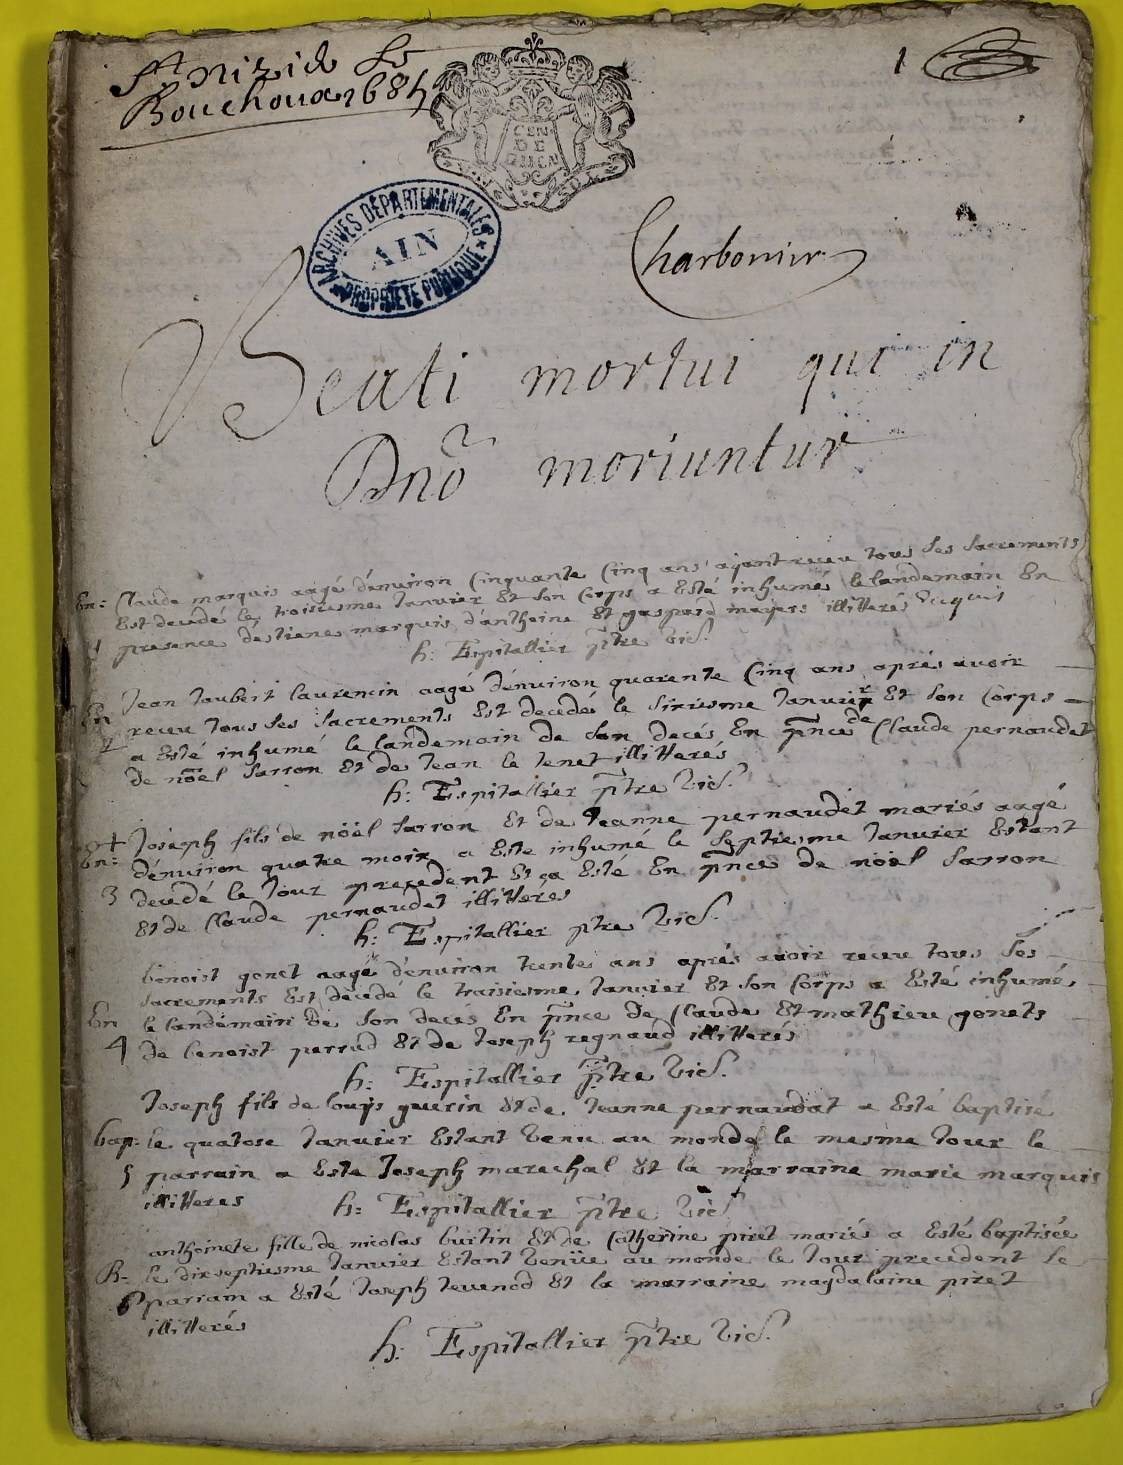 St nizie Le
Bouchoux 1685
1
GEN
DE
ARCHIVES DÉPARTEMENTALES
AIN
PROPRIÉTÉ PUBLIQUE
Charbonier
Beati mortui qui in
Dnō moriuntur
En: Claude marquis aagé d'énviron Cinquante Cinq ans ajant receu tous ses sacrements
Est decedé le troisiesme Janvier Et son Corps a Esté inhumé le landemain En
1 presence d'estiene marquis d'anthoine Et gaspard mayers illitterés
h: Espitallier p̄tre vic.
Jean Jaubert laurencin aagé d'énviron quarente Cinq ans aprés avoir
En receu tous ses sacrements Est decedé le sixiesme Janvier Et son Corps
2 a Esté inhumé le landemain de son decés En p̄nce de Claude pernaudet
de nöel sarron Et de Jean le tenet illitterés
h: Espitallier p̄tre vic.
Joseph fils de nöel sarron Et de Jeanne pernaudet mariés aagé
En: d'énviron quatre moix a Este inhumé le septiesme Janvier Estant
3 decedé le Jour precedent Et ça Esté En p̄nce de nöel sarron
Et de Claude pernaudet illitterés
h: Espitallier ptre vic.
benoist gonet aagé d'énviron trente ans aprés avoir receu tous ses
sacrements Est decedé le traisiesme Janvier Et son Corps a Esté inhumé
En le landemain de son deces En p̄nce de Claude Et mathieu gonets
4 de benoist perrud Et de Joseph regnaud illitterés
h: Espitallier p̄tre vic.
Joseph fils de louys guerin Et de Jeanne pernaudat a Esté baptisé
bap: le quatose Janvier Estant venu au monde le mesme Jour le
5 parrain a Este Joseph marechal Et la marraine marie marquis
illitteres h: Espitallier p̄tre vic
anthoinete fille de nicolas burtin Et de Catherine piret mariés a Esté baptisée
B: le dixseptiesme Janvier Estant venüe au monde le Jour precedent le
6 parrain a Esté Joseph tevenod Et la marraine magdalaine piret
illitterés
h: Espitallier p̄tre vic.